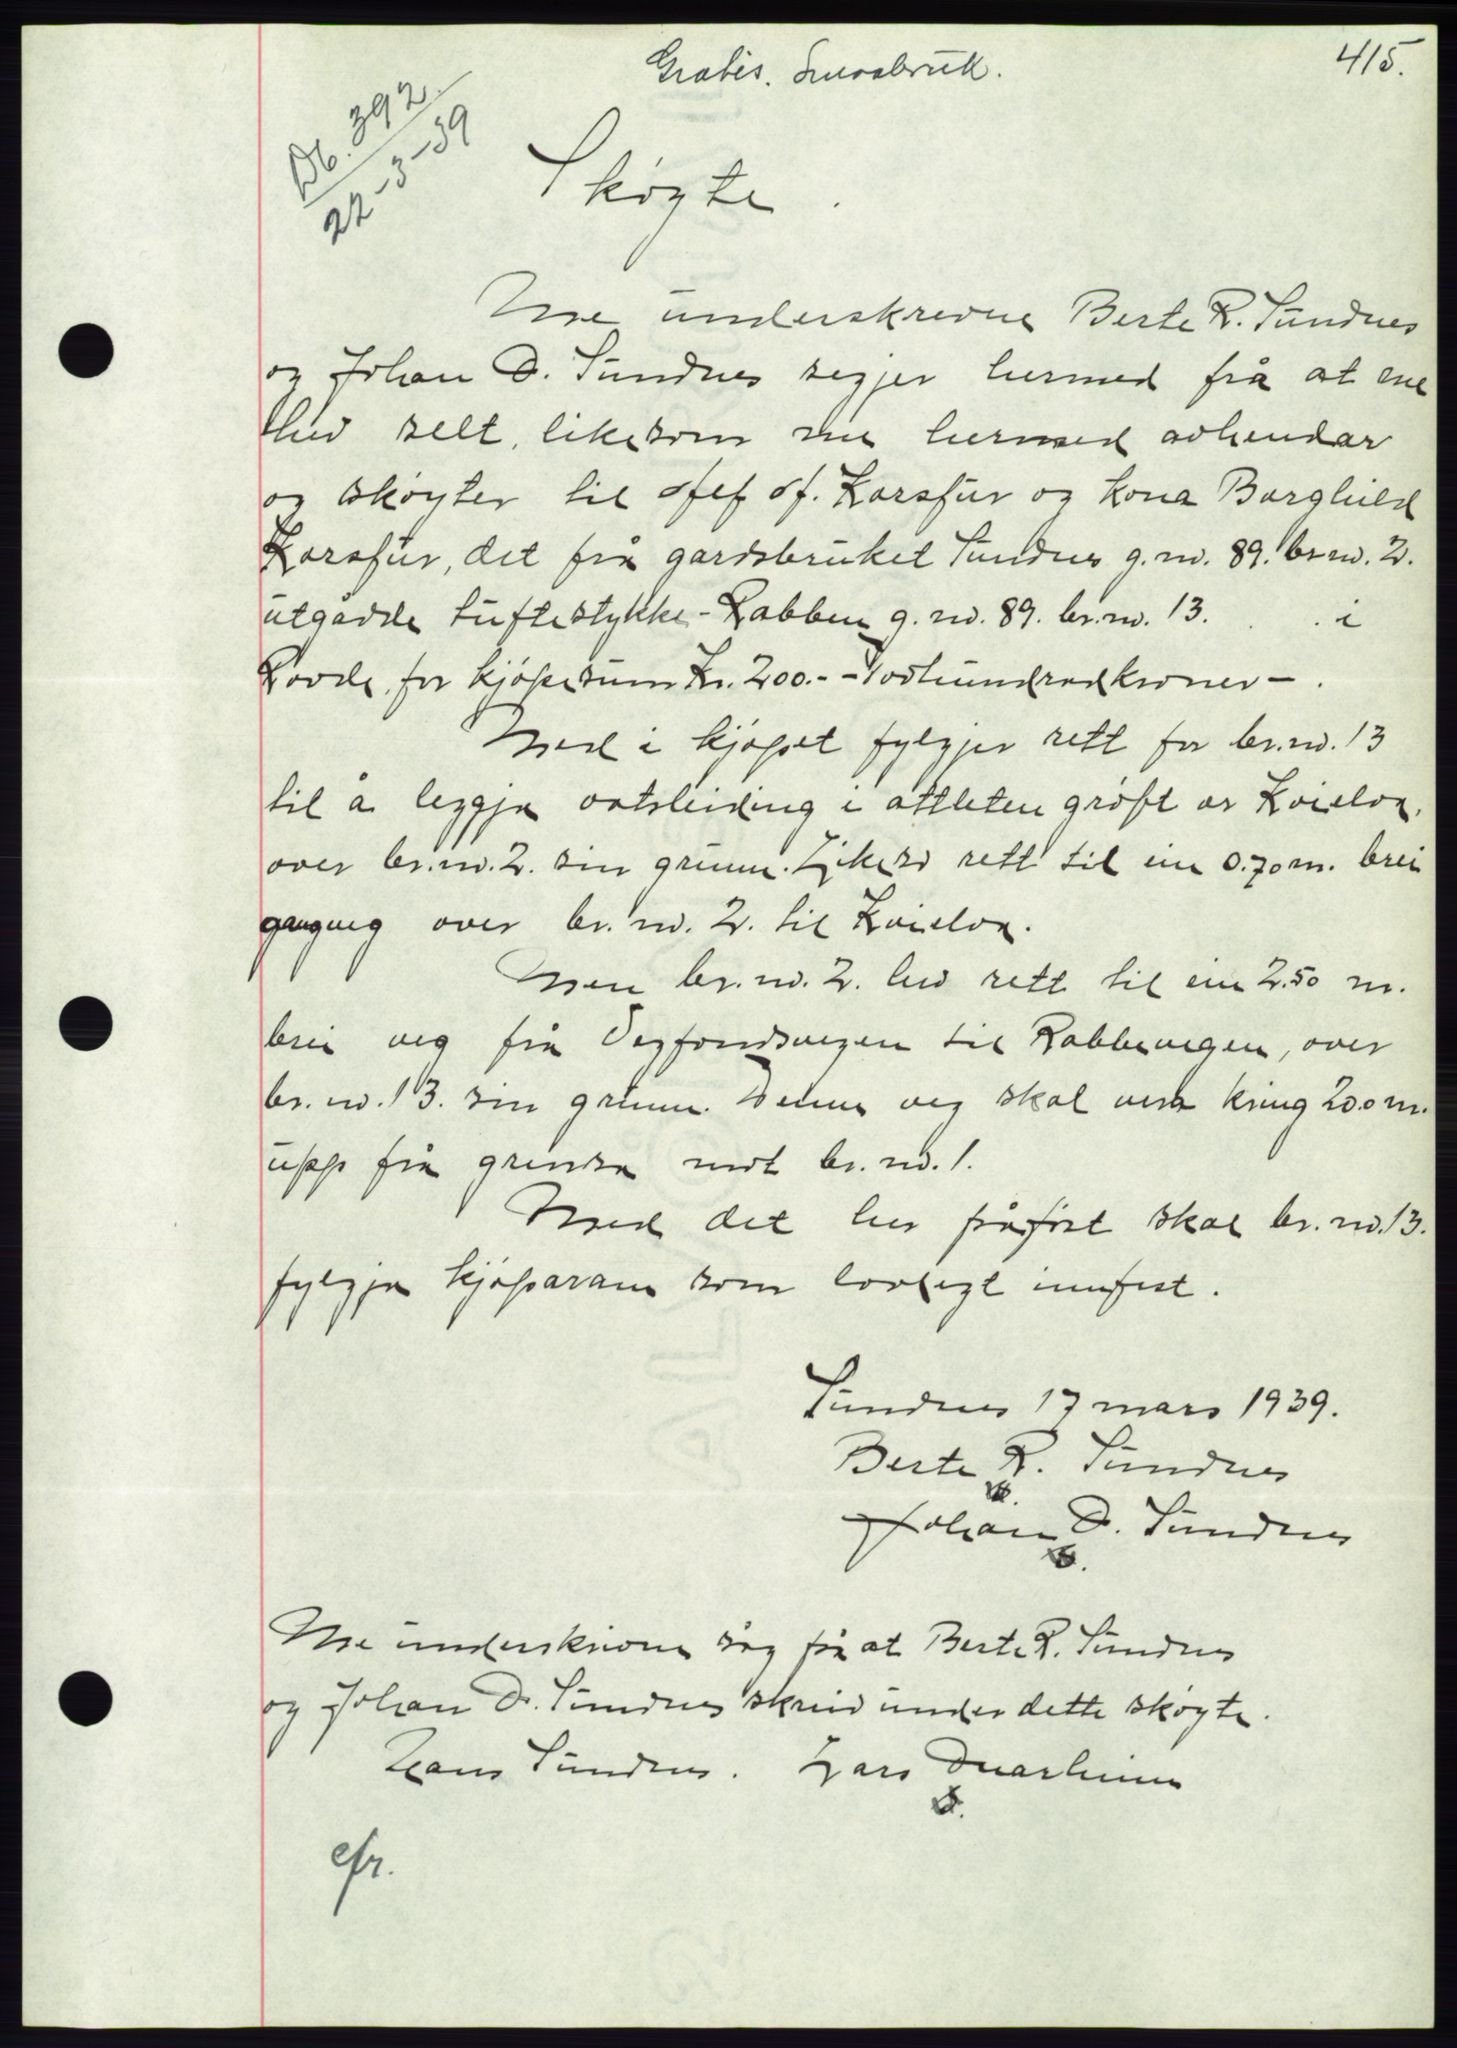 415.
Gratis. Smaabruk.
Db. 392.
22-3-39
Skøyte.
Me underskrevne Berte R. Sundnes
og Johan D. Sundnes segjer hermed frå at me
hev selt, likesom me hermed avhendar
og skøyter til Korsfur og kona Borghild
Korsfur, det frå gardsbruket Sundnes g.nr. 89. br.nr. 2.
utgådde tuftestykke - Rabben g.nr. 89. br.nr. 13. i
Rovde, for kjøpesum Kr. 200.- - Tvohundradkroner - .
Med i kjøpet fylgjer rett for br.nr. 13
til å leggja vatsleiding i attleten grøft or Kvielva,
over br.nr. 2. sin grunn. Likeso rett til ein 0.70 m. brei
gangveg over br.nr. 2. til Kvielva.
Men br.nr. 2. hev rett til ein 2.50 m.
brei veg frå Vegfondsvegen til Rabbevegen, over
br.nr. 13. sin grunn. Denne veg skal vera kring 20.0 m.
upp frå grensa mot br.nr. 1.
Med det her påførte skal br.nr. 13.
fylgja kjøparane som lovlegt innfest.
Sundnes 17 mars 1939.
Berte R. Sundnes
Johan D. Sundnes
Me underskrivne såg på at Berte R. Sundnes
og Johan D. Sundnes skreiv under dette skøyte.
Hans Sundnes. Lars